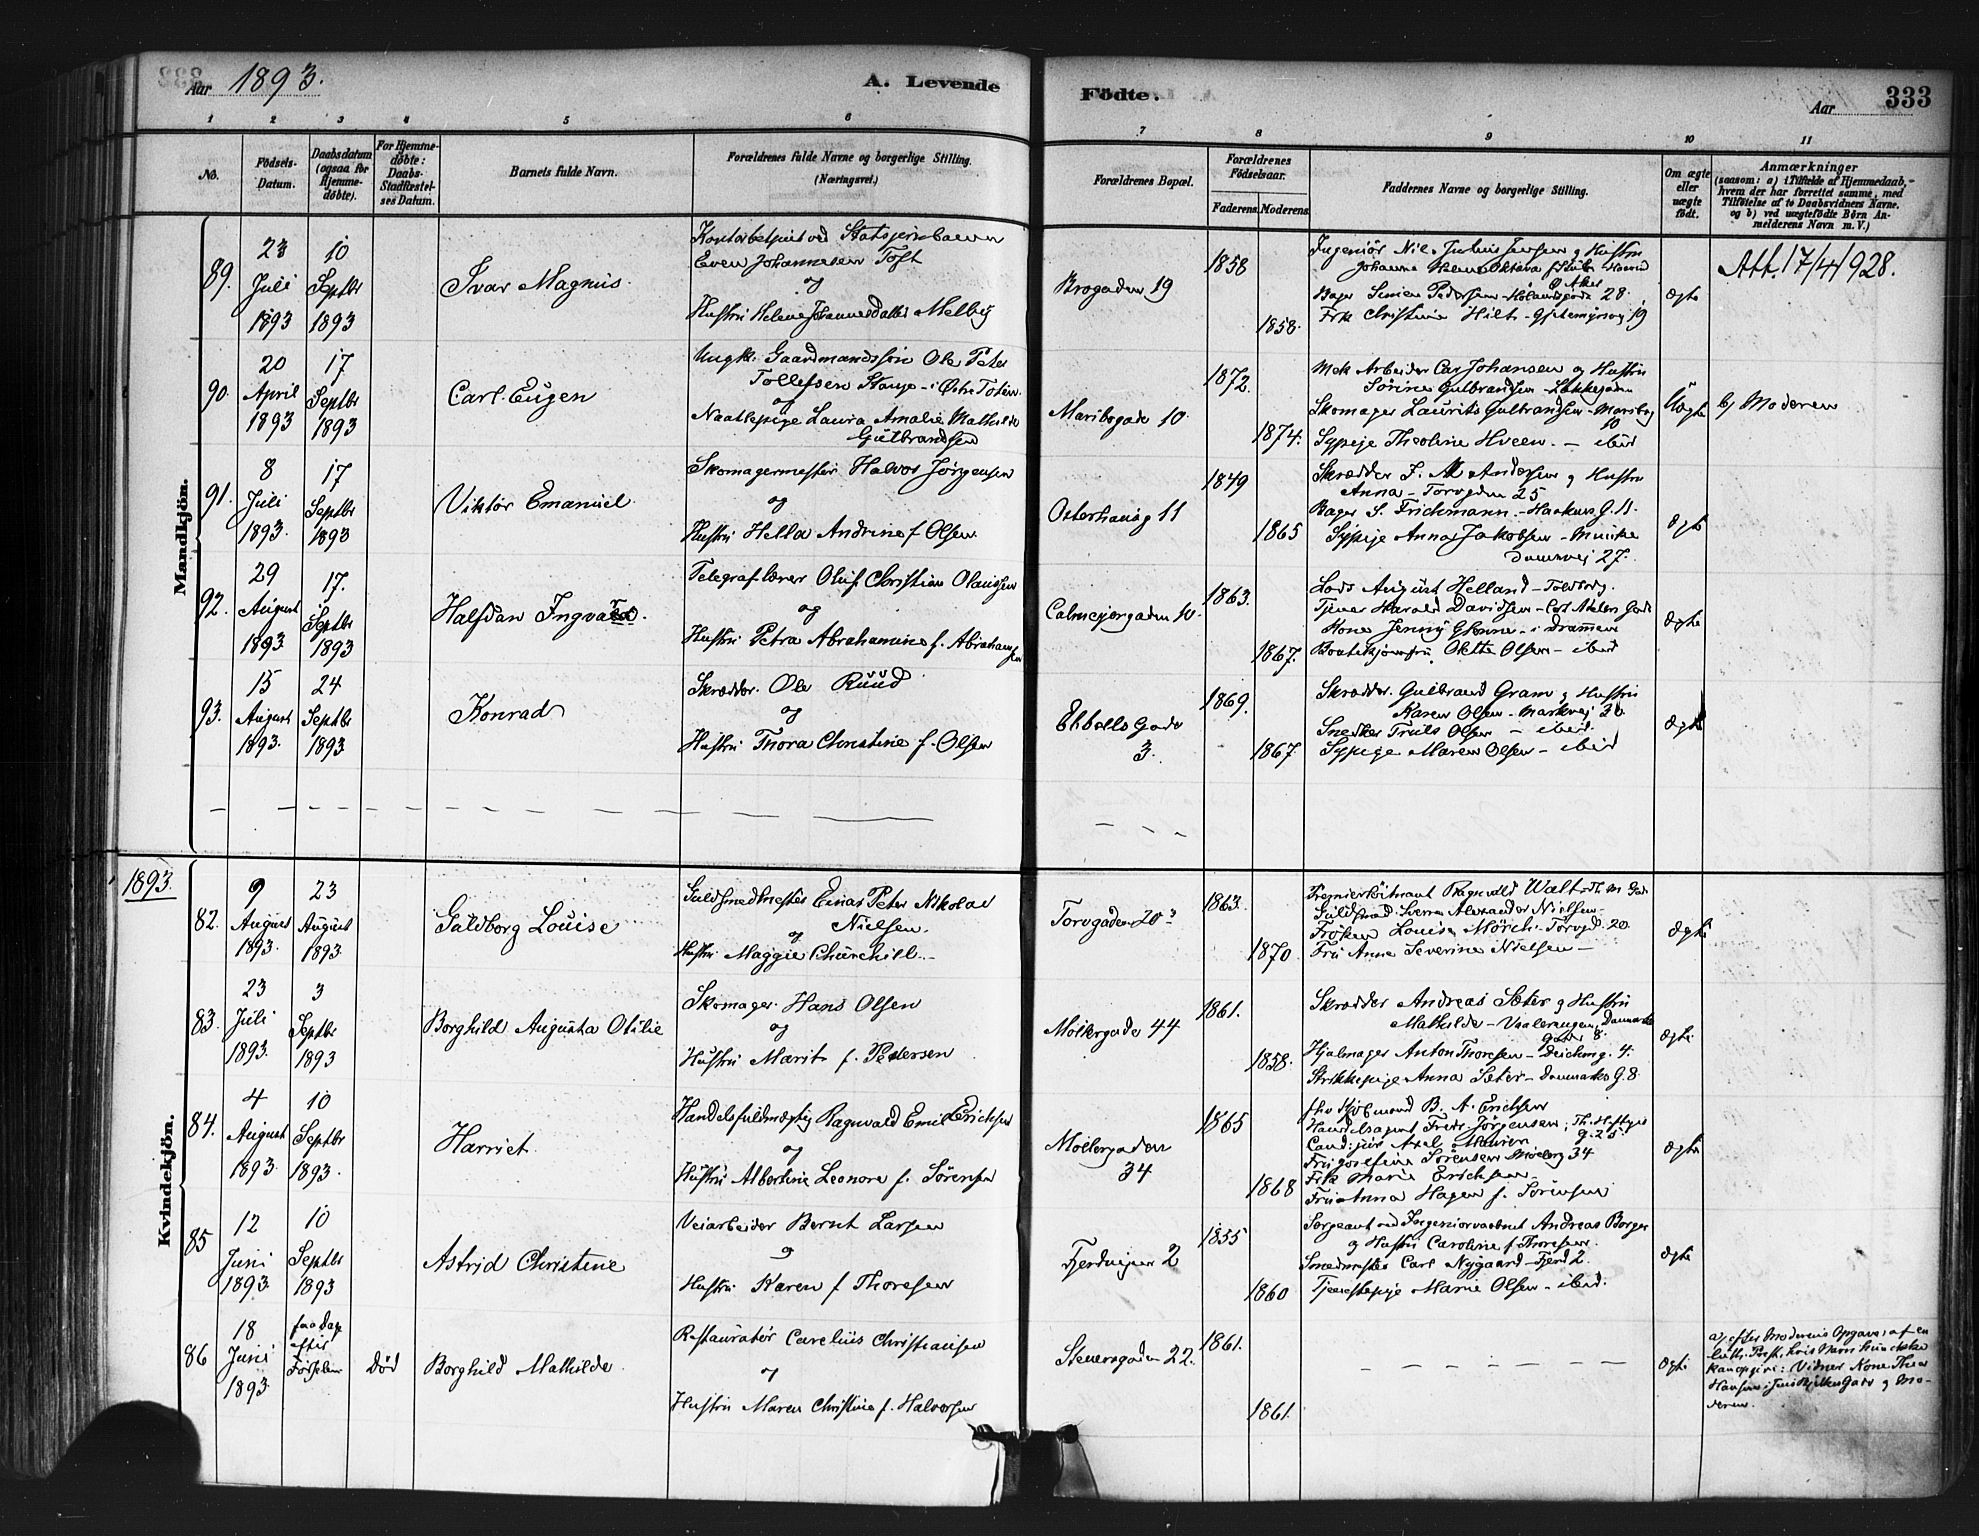 Aar 1893. A. Levende Födte. Aar 333
1 2 3 4 5 6 7 8 9 10 11
No.
Födsels-
Datum.
Daabsdatum
(ogsaa for
Hjemme-
döbte).
For Hjemme-
döbte:
Daabs-
Stadfæstel-
ses Datum.
Barnets fulde Navn.
Forældrenes fulde Navne og borgerlige Stilling.
(Næringsvei.)
Forældrenes Bopæl.
Forældrenes
Födselsaar.
Faderens. Moderens.
Faddernes Navne og borgerlige Stilling.
Om ægte
eller
uægte
födt.
Anmærkninger
(saasom: a) i Tilfælde af Hjemmedaab,
hvem der har forrettet samme, med
Tilföielse af to Daabsvidners Navne,
og b) ved uægtefödte Börn An-
melderens Navn m. V.)
Mandkjön.
89.
23
Juli
1893
10
Septbr
1893
Ivar Magnus.
Even Johannesen Toft
og
Hustru Helene Johannesdatter Melby
Brogaden 19
1858
1858.
Ingeniör Nils Julius Jensen og Hustru
Bager Simen Pedersen - 28.
Frk Christine Hilt - 19
Ægte
Att. 17/4 1928.
90.
20
April
1893
17
Septbr
1893
Carl Eugen
Ungk. Gaardmandssön Ole Peter
Tollefsen Stange - i Östre Toten
og
Laura Amalie Mathilde
Gulbrandsen
Maribogade 10.
1872.
1874.
Mek Arbeider Carl Johansen og Hustru
Sörine Gulbrandsen - Lökkegaden
Skomager Laurits Gulbrandsen - Maribog
10
Sypige Theoline Hveen. - ibid
Uægte
b) Moderen
91.
8
Juli
1893.
17
Septbr
1893
Viktor Emanuel
Skomagermester Halvor Jörgensen
og
Hustru Hella Andrine f. Olsen
Osterhausg 11
1849
1865
Skrædder F. M Andersen og Hustru
Anna - Torvgden 25
Bager S. Frichmann. - Haakons G. 11.
Sypige Anna Jakobsen - Munke
damsvej 27.
Ægte
92.
29
August
1893
17.
Septbr
1893
Halfdan Ingvard.
Telegraflærer Oluf Christian Olaussen
og
Hustru Petra Abrahamine f. Abrahamsen
Calmeyergaden 10.
1863.
1867.
Lods August Helland - Toldbodg.
Tjener Harald Davidsen - Carl Gade
Kone Jenny - i Drammen
Olette Olsen - ibid
Ægte
93.
15
August
1893.
24
Septbr
1893
Konrad
Skrædder. Ole Ruud
og
Hustru Thora Christine f. Olsen
Eckells Gade
3.
1869.
1867.
Skrædder. Gulbrand Gram og Hustru
Karen Olsen - Markvej 30
Snedker Truls Olsen - ibid.
Sypige Maren Olsen - ibid
Ægte
1893.
Kvindekjön.
82.
9
August
1893.
23
August
1893.
Guldborg Louise
Guldsmedmester Einar Peter Nikolai
Nielsen.
og
Hustru Maggie Churchill.
Torvgaden 20 3
1863.
1870.
Premierlöitnant Ragnvald Walt - Th. M. Gade
Guldsmed Sverre Alexander Nielsen -
Fröken Louise Mörch. Torvgd. 20
Fru Anne Severine Nielsen -
Ægte
83.
23
Juli
1893.
3
Septbr
1893
Borghild Augusta Otilie
Skomager. Hans Olsen
og
Hustru Marit f. Pedersen
Möllergade 44
1861.
1858.
Skrædder Andreas Sæter og Hustru
Mathilde - Vaalerengen, Danmarks
gade 8.
Hjulmager Anton Thoresen - Deichmg. 4.
Strikkepige Anna Sæter - Danmarks G. 8
Ægte
84.
4
August
1893.
10
Septbr
1893.
Harriet
Handelsfuldmægtig Ragnvald Emil Erichsen
og
Hustru Albertine Leonore f. Sörensen
Möllergaden
34
1865
1868
fhv Kjöbmand B. A. Erichsen
Handelsagent Fredr Jörgensen, Th. Heftyes
g. 25
Cand. jur Axel
Fru Josefine Sörensen Möllerg 34
Frk Marie Erichsen
Fru Anna Hagen f. Sörensen
Ægte
85
12
Juni
1893
10
Septbr
1893
Astrid Christine
Veiarbeider Bernt Larsen
og
Hustru Karen f Thoresen
Fjerdingen 2
1855
1860
Sergeant ved Ingeniørvaabnet Andreas Borger
og Hustru Caroline f. Thoresen.
Smedmester Carl Nygaard - Fjerd 2.
Tjenestepige Marie Olsen - ibid.
Ægte
86
18
Juni
1893
faa Dage
efter
Födselen
Död
Borghild Mathilde
Restauratör Carelius Christiansen
og
Hustru Maren Christine f. Halvorsen
Steensgaden 22.
1861.
1861.
Ægte
a) efter Moderens Opgave; af en
luth. Præst, hvis Navn hun ikke
kan opgive: Vidner Kone Thea
Hansen i Jens Bjelkes Gade og Mo-
deren.